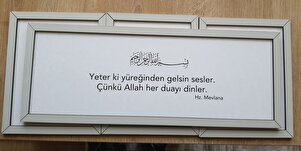 بسم الله الرحمن الرحيم
Yeter ki yüreğinden gelsin sesler.
Çünkü Allah her duayı dinler.
Hz. Mevlana